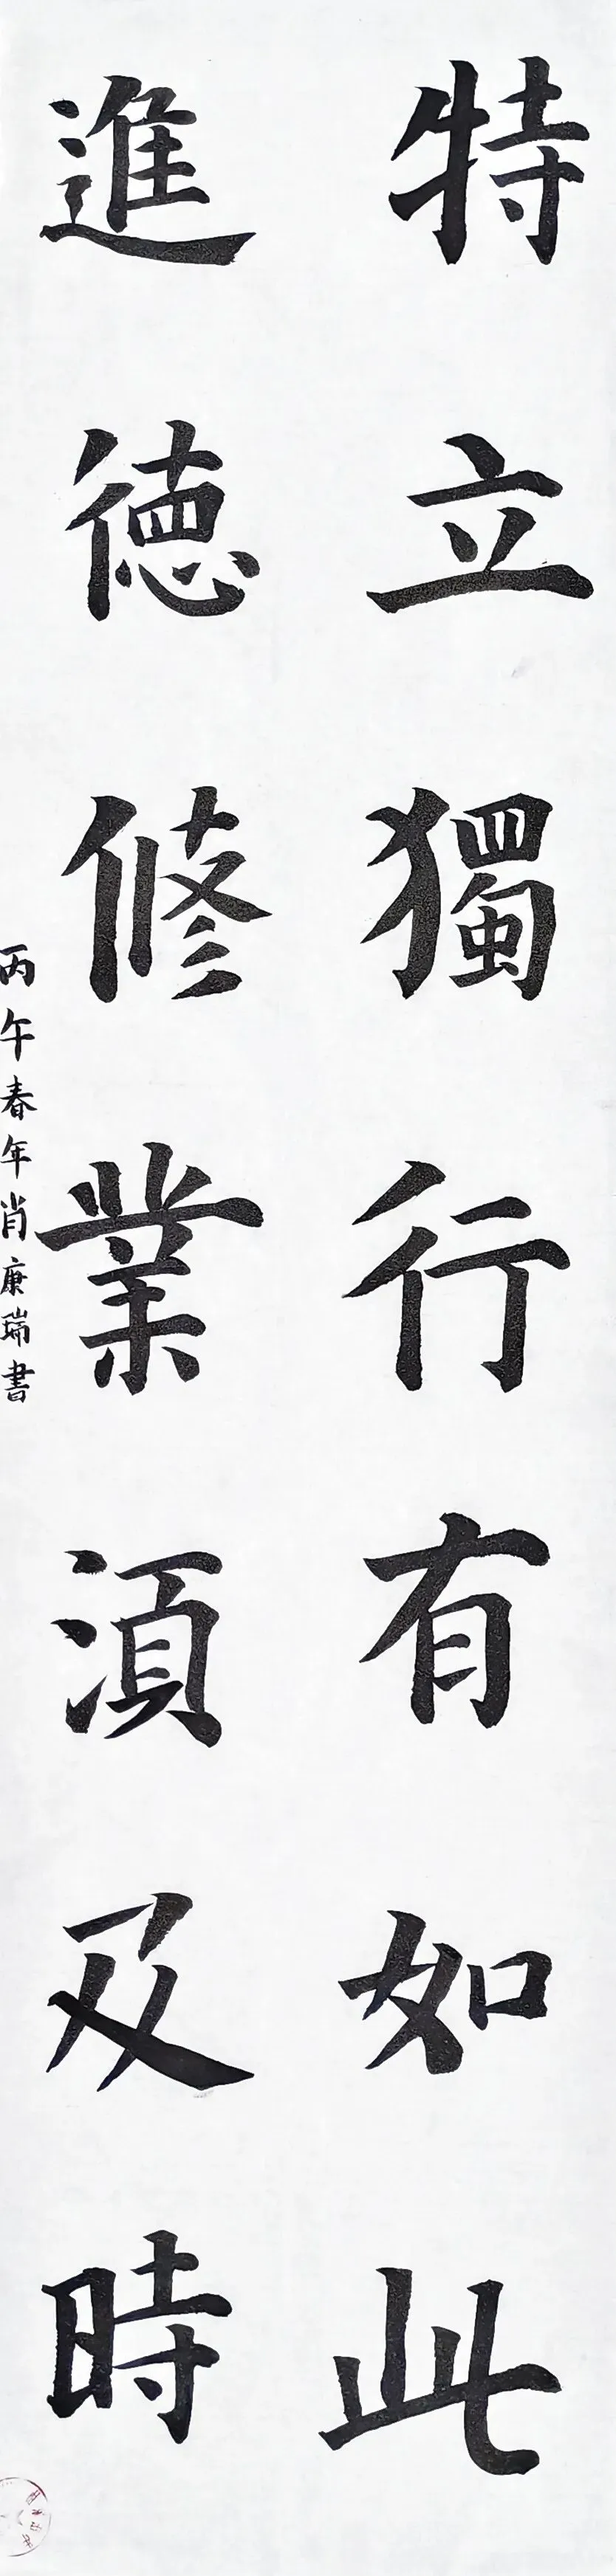 特立獨行有如此
進德修業湏及時
丙午春年肖康瑞書